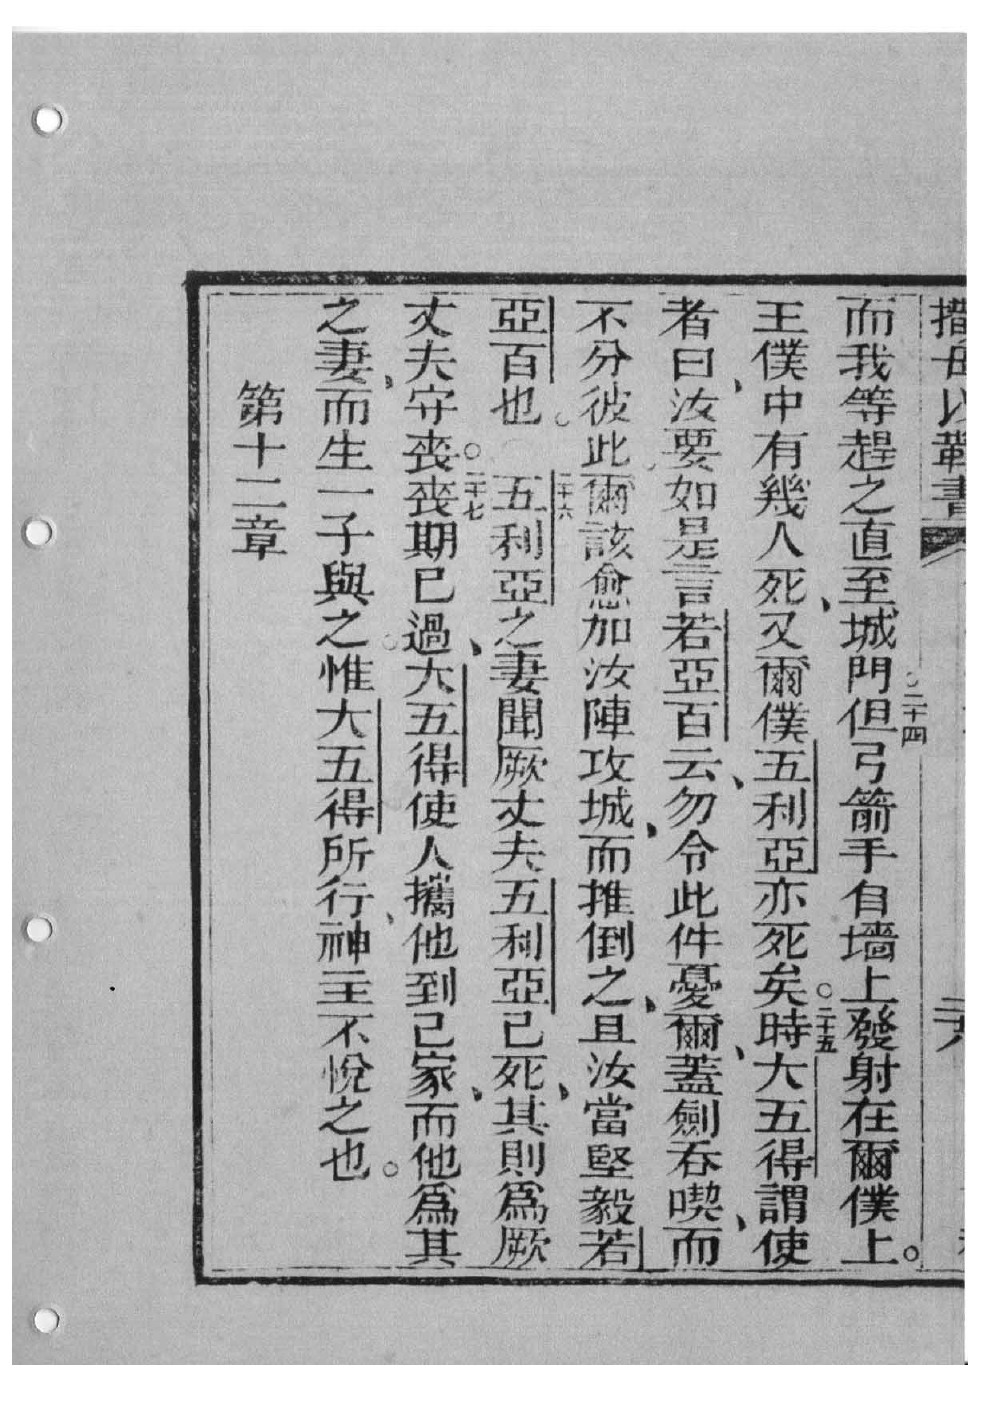 撒母以勒書
二十八
而我等趕之直至城門但弓箭手自墻上發射在爾僕上。
二十四
王僕中有幾人死、又爾僕五利亞亦死矣。二十五時大五得謂使
者曰、汝要如是言若亞百云、勿令此件憂爾、蓋劍吞喫、而
不分彼此爾該愈加汝陣攻城、而推倒之、且汝當堅毅若
亞百也。二十六五利亞之妻聞厥丈夫五利亞已死、其則爲厥
丈夫守喪。二十七喪期已過、大五得使人攜他到己家、而他爲其
之妻、而生一子與之。惟大五得所行、神主不悅之也。
第十二章